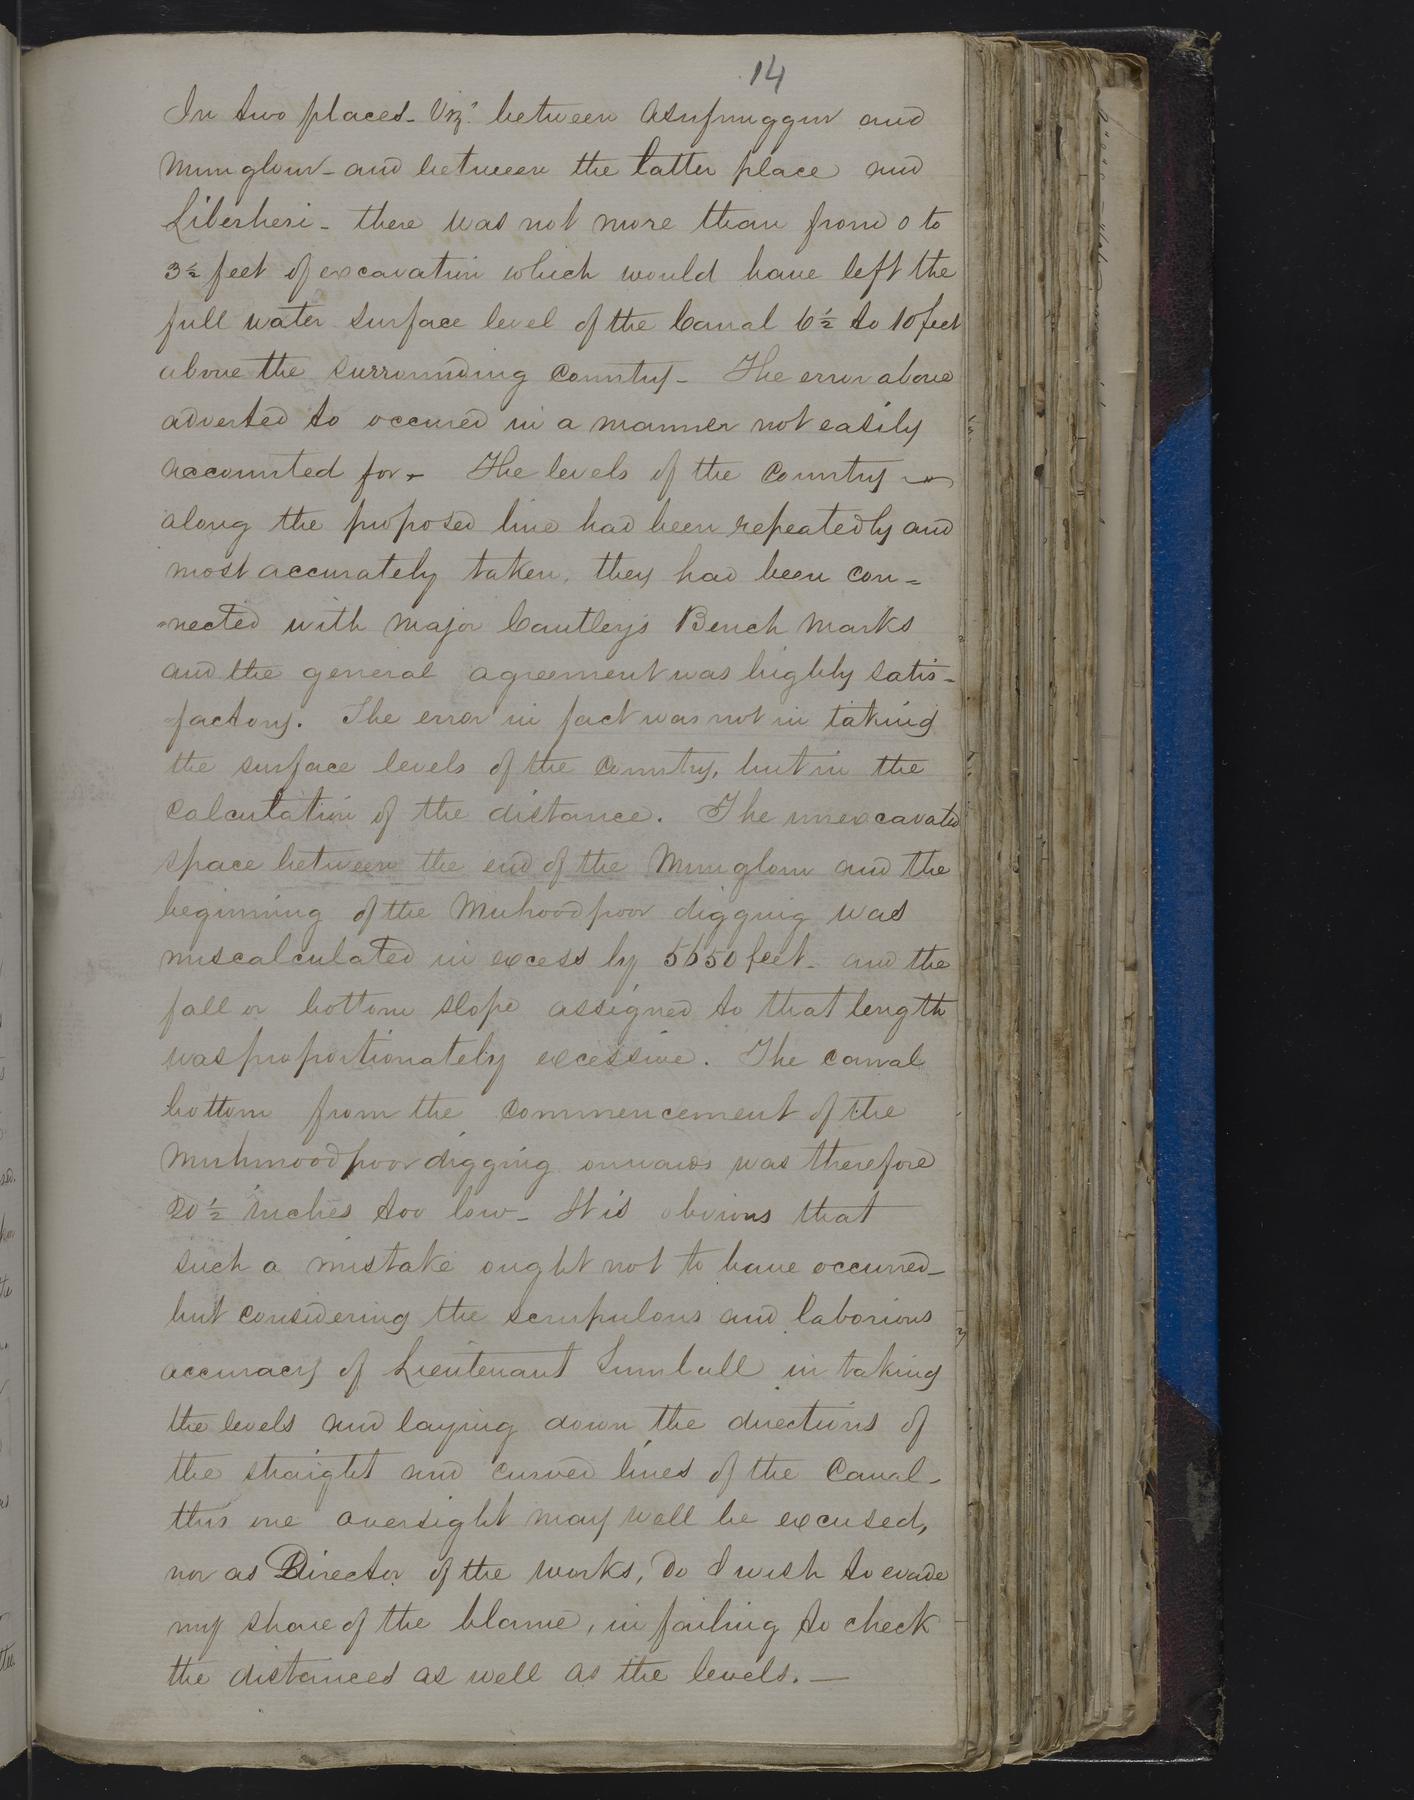 14
In two places - Viz.t between Asufnuggur and
Munglour - and between the latter place and
Liberheri - there was not more than from 0 to
3½ feet of excavation which would have left the
full water surface level of the Canal 6½ to 10 feet
above the surrounding country - The error above
adverted to occured in a manner not easily
accounted for - The levels of the Country
along the proposed line had been repeatedly and
most accurately taken, they had been con=
=nected with Major Cautley's Bench Marks
and the general agreement was highly satis=
=factory. The error in fact was not in taking
the surface levels of the Country, but in the
calculation of the distance. The unexcavated
space between the end of the Munglour and the
beginning of the Muhoodpoor digging was
miscalculated in excess by 5650 feet - and the
fall or bottom slope assigned to that length
was proportionately excessive. The canal
bottom from the commencement of the
Muhmoodpoor digging onwards was therefore
20½ inches too low - It is obvious that
such a mistake ought not to have occurred -
but considering the scrupulous and laborious
accuracy of Lieutenant in taking
the levels and laying down the directions of
the straight and curved lines of the Canal -
this one oversight may well be excused,
nor as Director of the works, do I wish to evade
my share of the blame, in failing to check
the distances as well as the levels. —